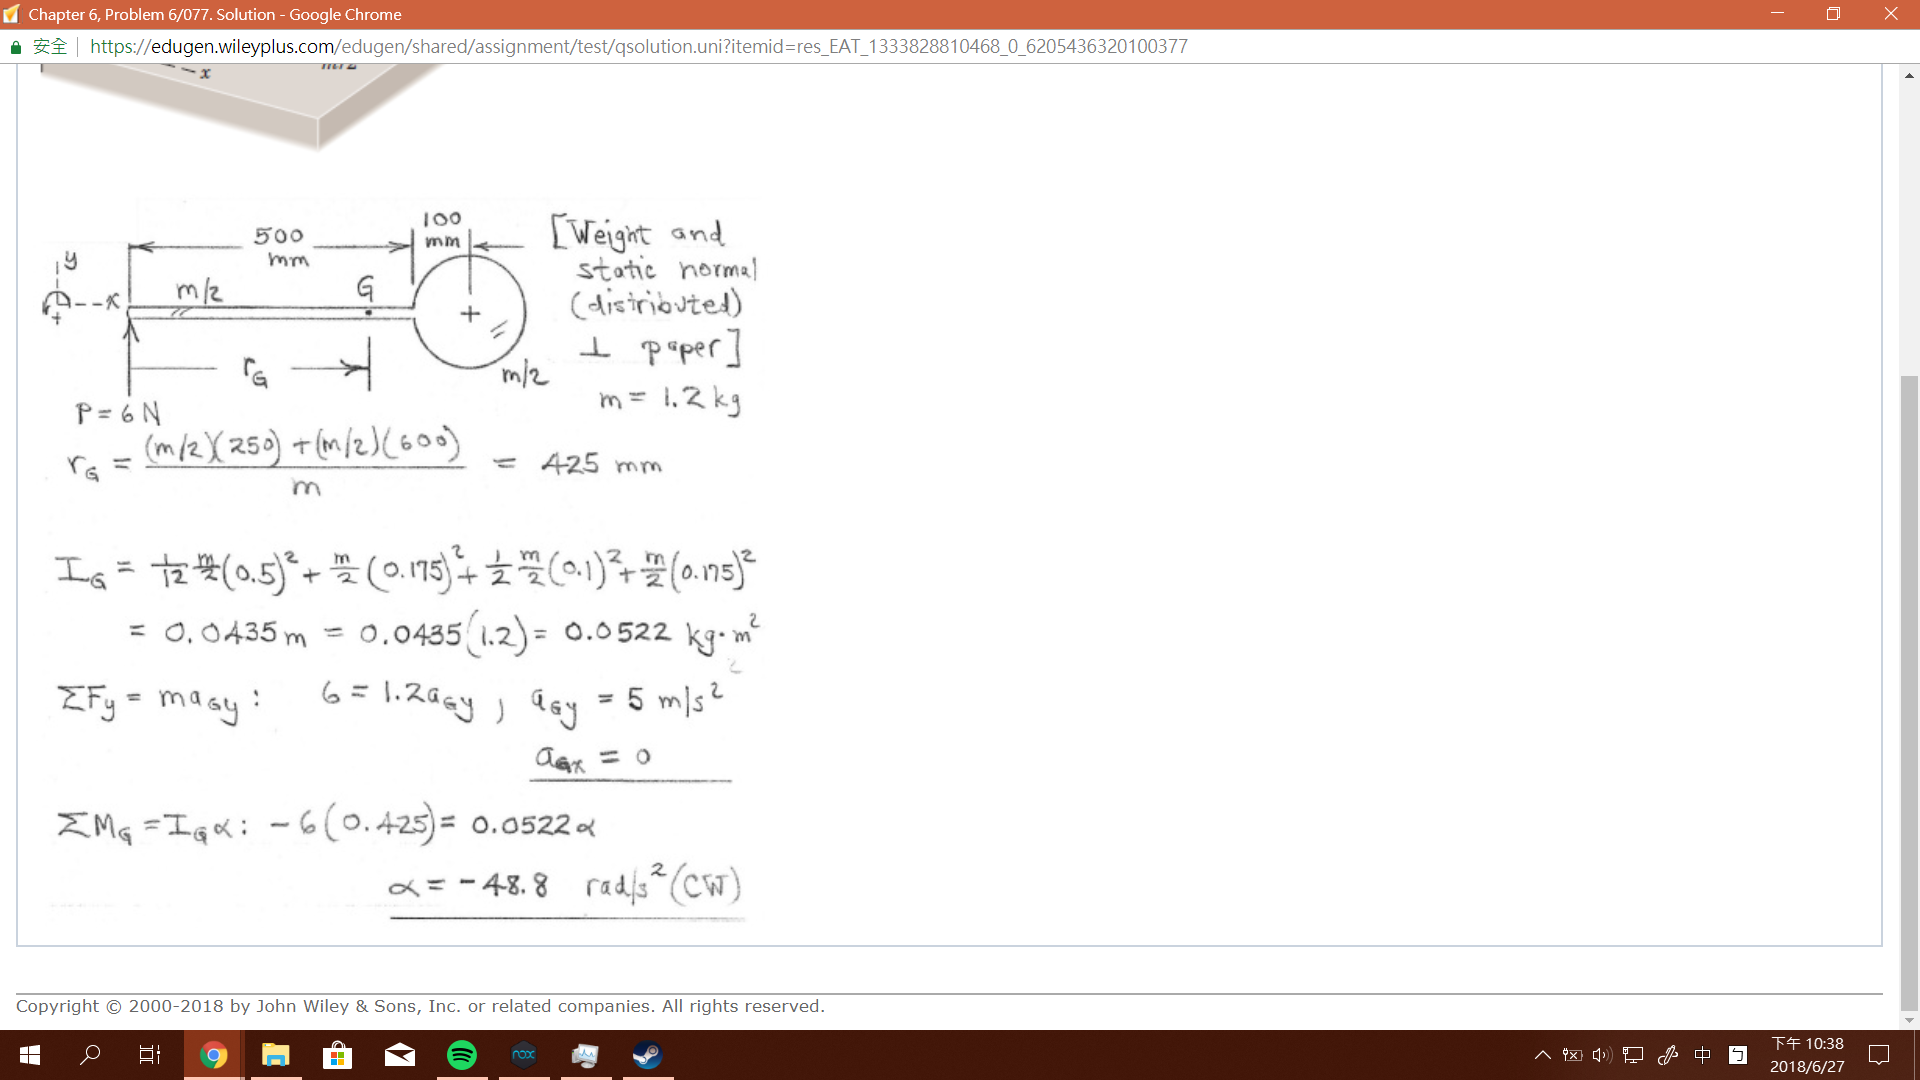 Chapter 6, Problem 6/077. Solution - Google Chrome
安全 https://edugen.wileyplus.com/edugen/shared/assignment/test/qsolution.uni?itemid=res_EAT_1333828810468_0_6205436320100377
x
m/2
500 mm
100 mm
[Weight and
static normal
(distributed)
⊥ paper]
m = 1.2 kg
y
x
+
m/2
G
r_G
m/2
P = 6 N
r_G = ((m/2)(250) + (m/2)(600)) / m = 425 mm
I_G = 1/12 m/2 (0.5)² + m/2 (0.175)² + 1/2 m/2 (0.1)² + m/2 (0.175)²
= 0.0435 m = 0.0435(1.2) = 0.0522 kg·m²
ΣF_y = ma_Gy : 6 = 1.2a_Gy , a_Gy = 5 m/s²
a_Gx = 0
ΣM_G = I_G α : -6(0.425) = 0.0522 α
α = -48.8 rad/s² (CW)
Copyright © 2000-2018 by John Wiley & Sons, Inc. or related companies. All rights reserved.
nox
中
下午 10:38
2018/6/27